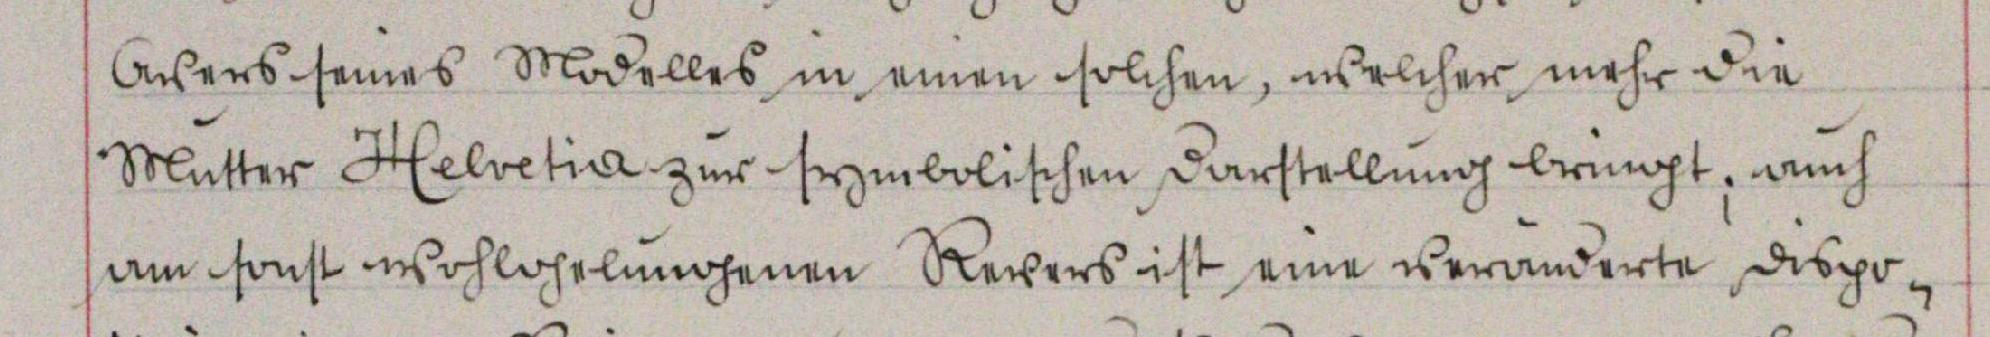 Avers seines Modelles in einen solchen, welcher mehr die
Mutter Helvetia zur symbolischen Darstellung bringt; auch
am sonst wohlgelungenen Revers ist eine veränderte Dispo-